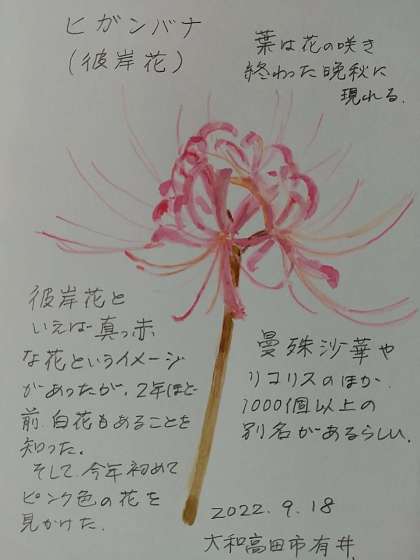 ヒガンバナ
(彼岸花)
葉は花の咲き
終わった晩秋に
現れる.
彼岸花と
いえば真っ赤
な花というイメージ
があったが、2年ほど
前、白花もあることを
知った.
そして、今年初めて
ピンク色の花を
見かけた.
曼殊沙華や
リコリスのほか、
1000個以上の
別名があるらしい.
2022.9.18
大和高田市有井